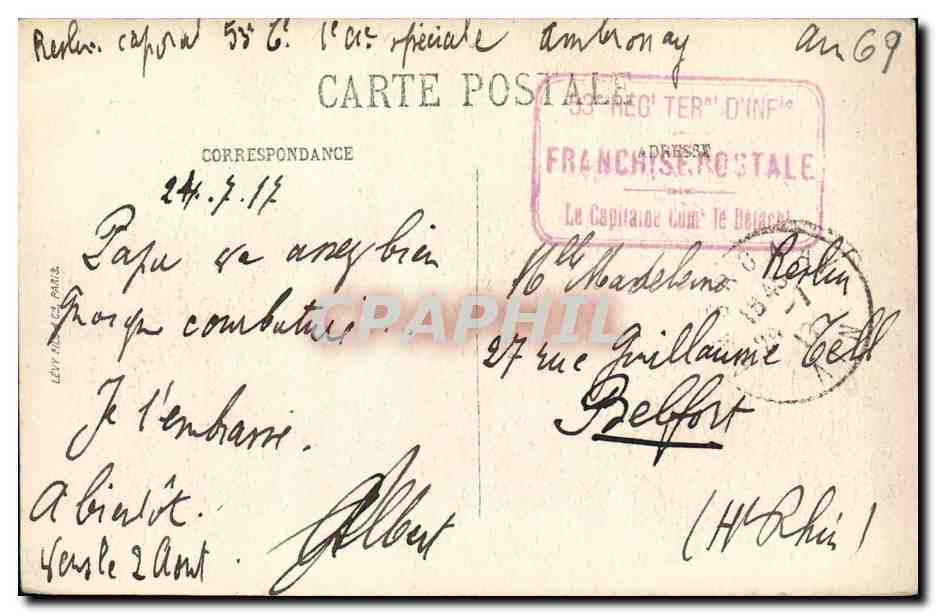 Reslin caporal 53e Tal 1e Cie spéciale Ambronay Ain 69
CARTE POSTALE
53e REGt TERal D'INFie
FRANCHISE POSTALE
Le Capitaine Comt le Détacht
CORRESPONDANCE
ADRESSE
24.7.17
Papa va assez bien
quoique courbaturé.
Je t'embrasse.
A bientôt.
Vers le 2 Aout
Albert
Mlle Madeleine Reslin
27 rue Guillaume Tell
Belfort
(Ht Rhin)
LÉVY FILS & Cie, PARIS.
CPAPHIL